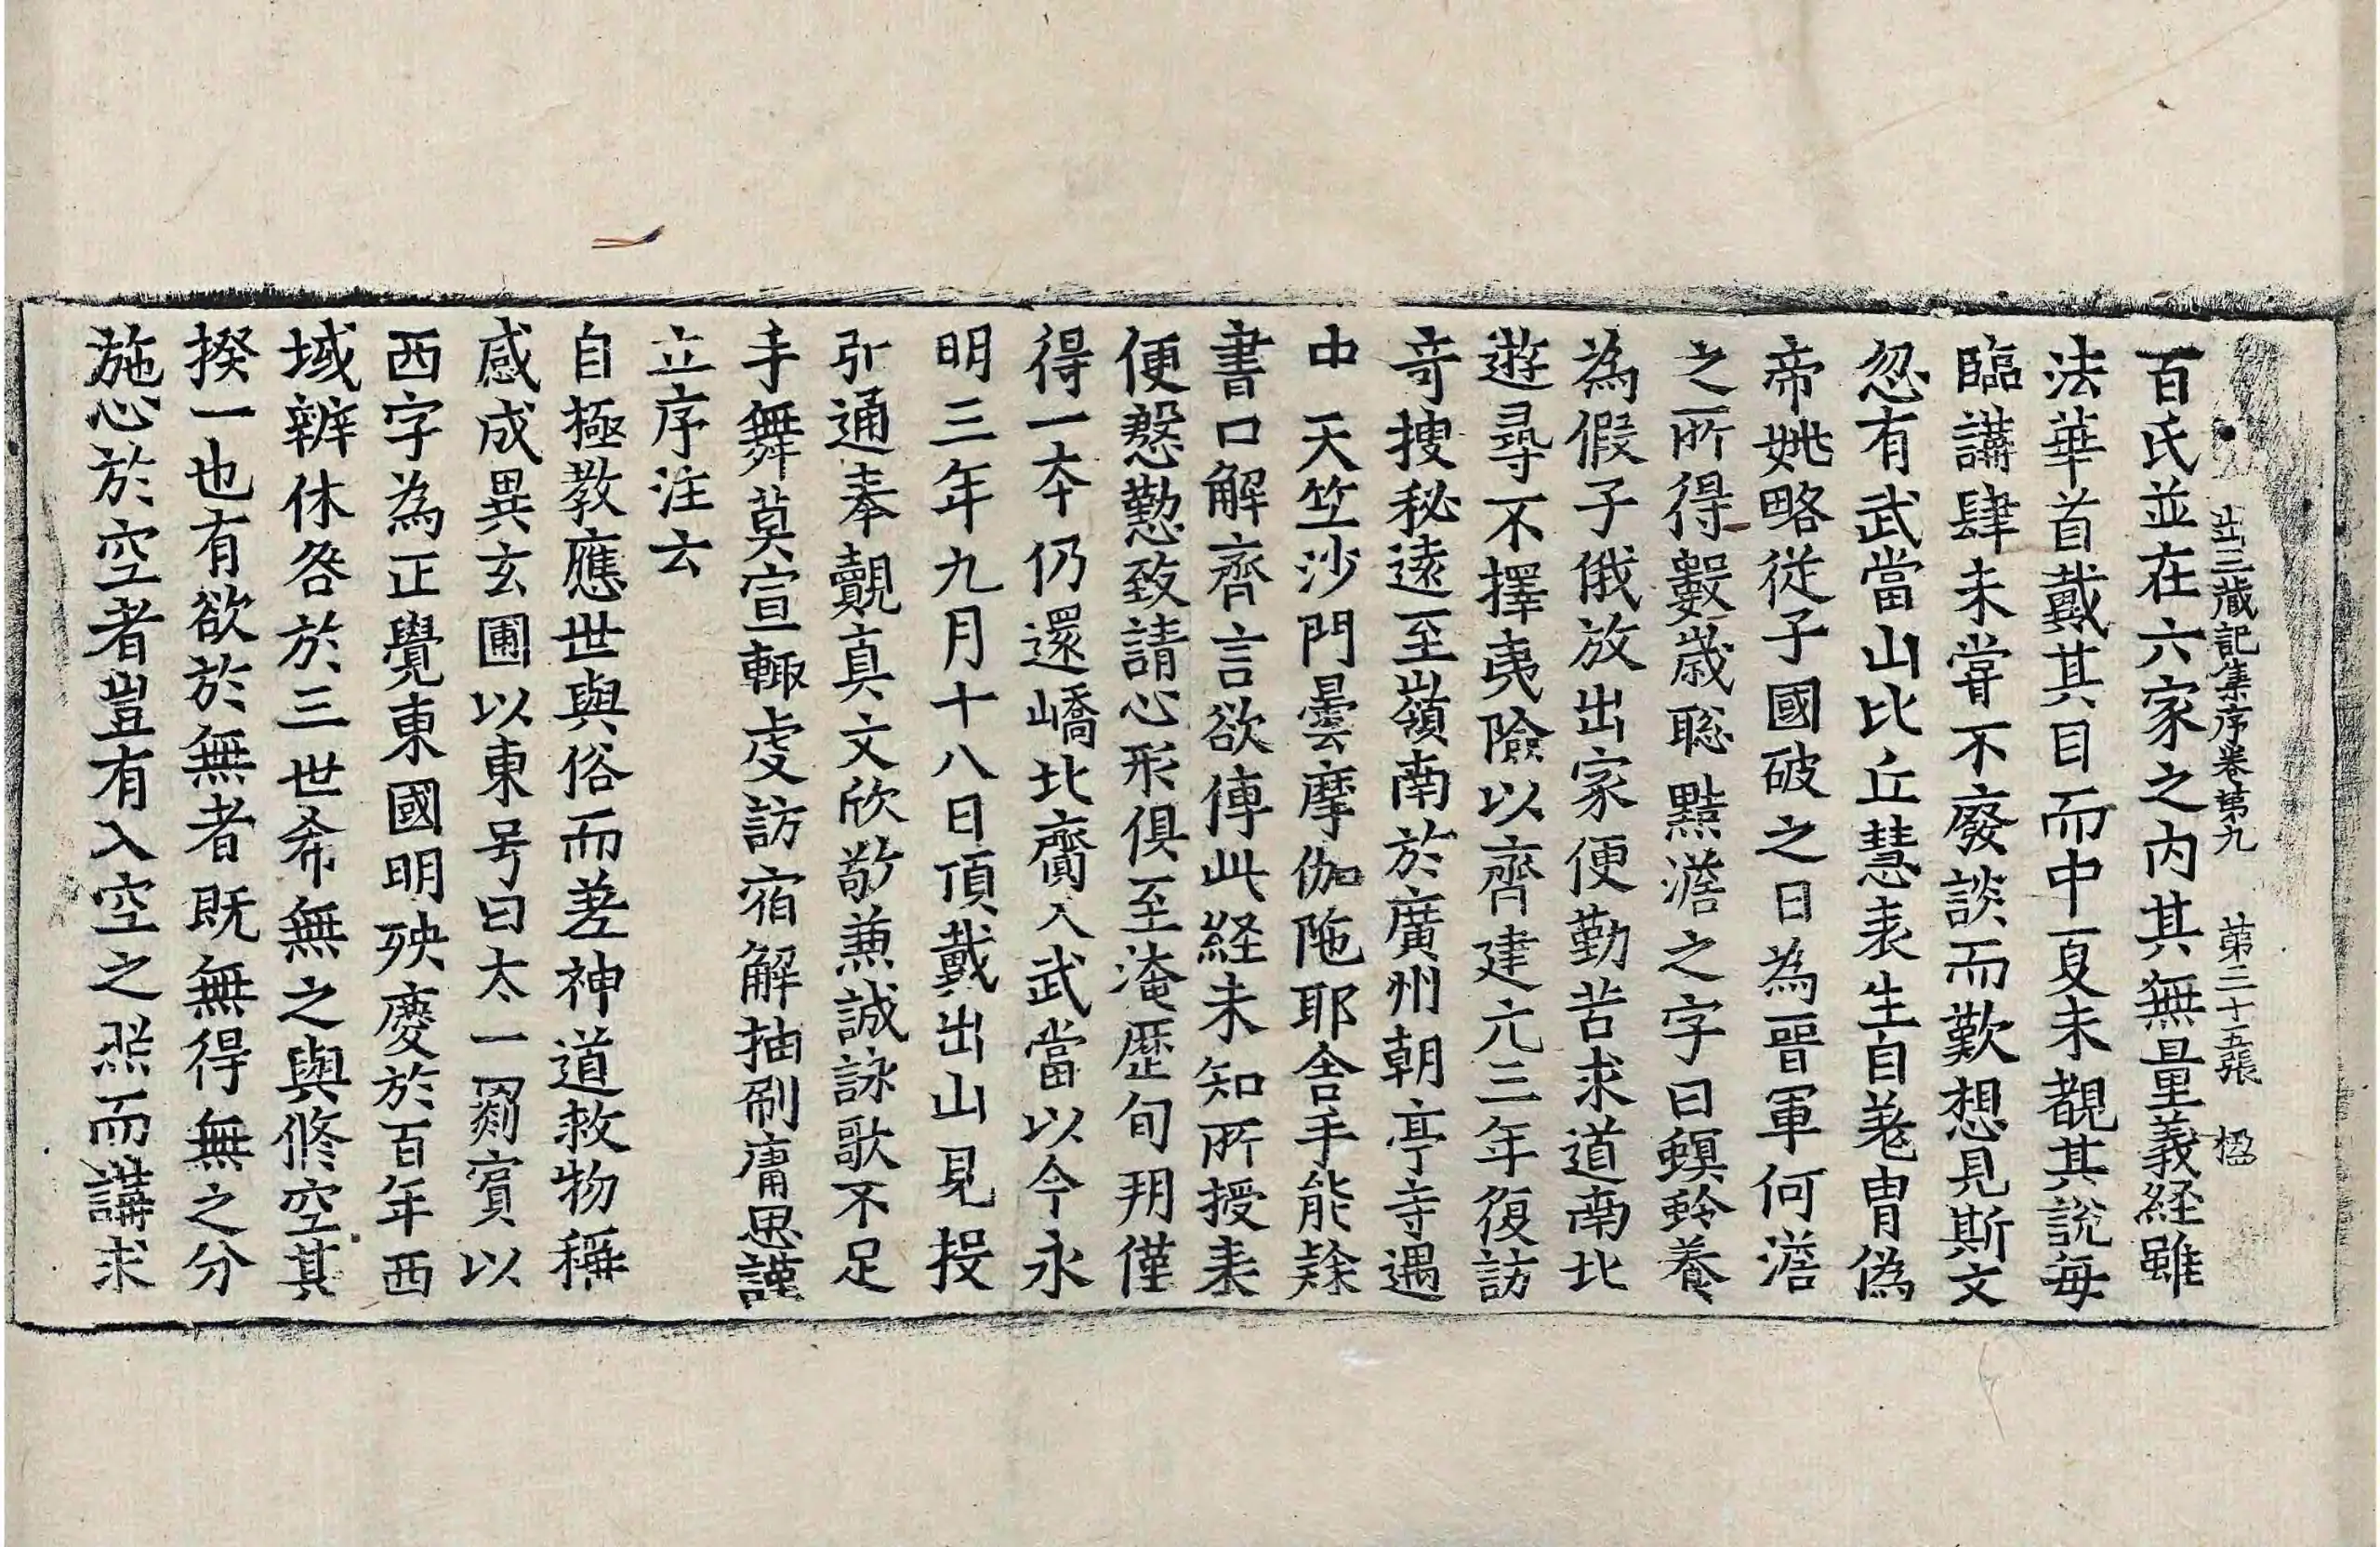 出三藏記集序卷第九 第二十五張 楹
百氏並在六家之内其無量義経雖
法華首戴其目而中夏未覩其說每
臨講肆未甞不廢談而歎想見斯文
忽有武當山比丘慧表生自羗胄偽
帝姚略從子國破之日為晉軍何澹
之所得數歳聡黠澹之字曰螟蛉養
為假子俄放出家便勤苦求道南北
遊尋不擇夷險以齊建元三年復訪
奇捜秘逺至嶺南於廣州朝亭寺遇
中天竺沙門曇摩伽陁耶舍手能𨽻
書口解齊言欲傳此経未知所授表
便慇懃致請心形俱至淹歴旬朔僅
得一夲仍還嶠北齎入武當以今永
明三年九月十八日頂戴出山見投
引通奉覿真文欣敬兼誠詠歌不足
手舞莫宣輙虔訪宿解抽刷庸思謹
立序注云
自極教應世與俗而差神道救物稱
感成異玄圃以東号曰太一罽賔以
西字為正覺東國明殃慶於百年西
域辨休咎於三世希無之與修空其
揆一也有欲於無者既無得無之分
施心於空者豈有入空之照而講求